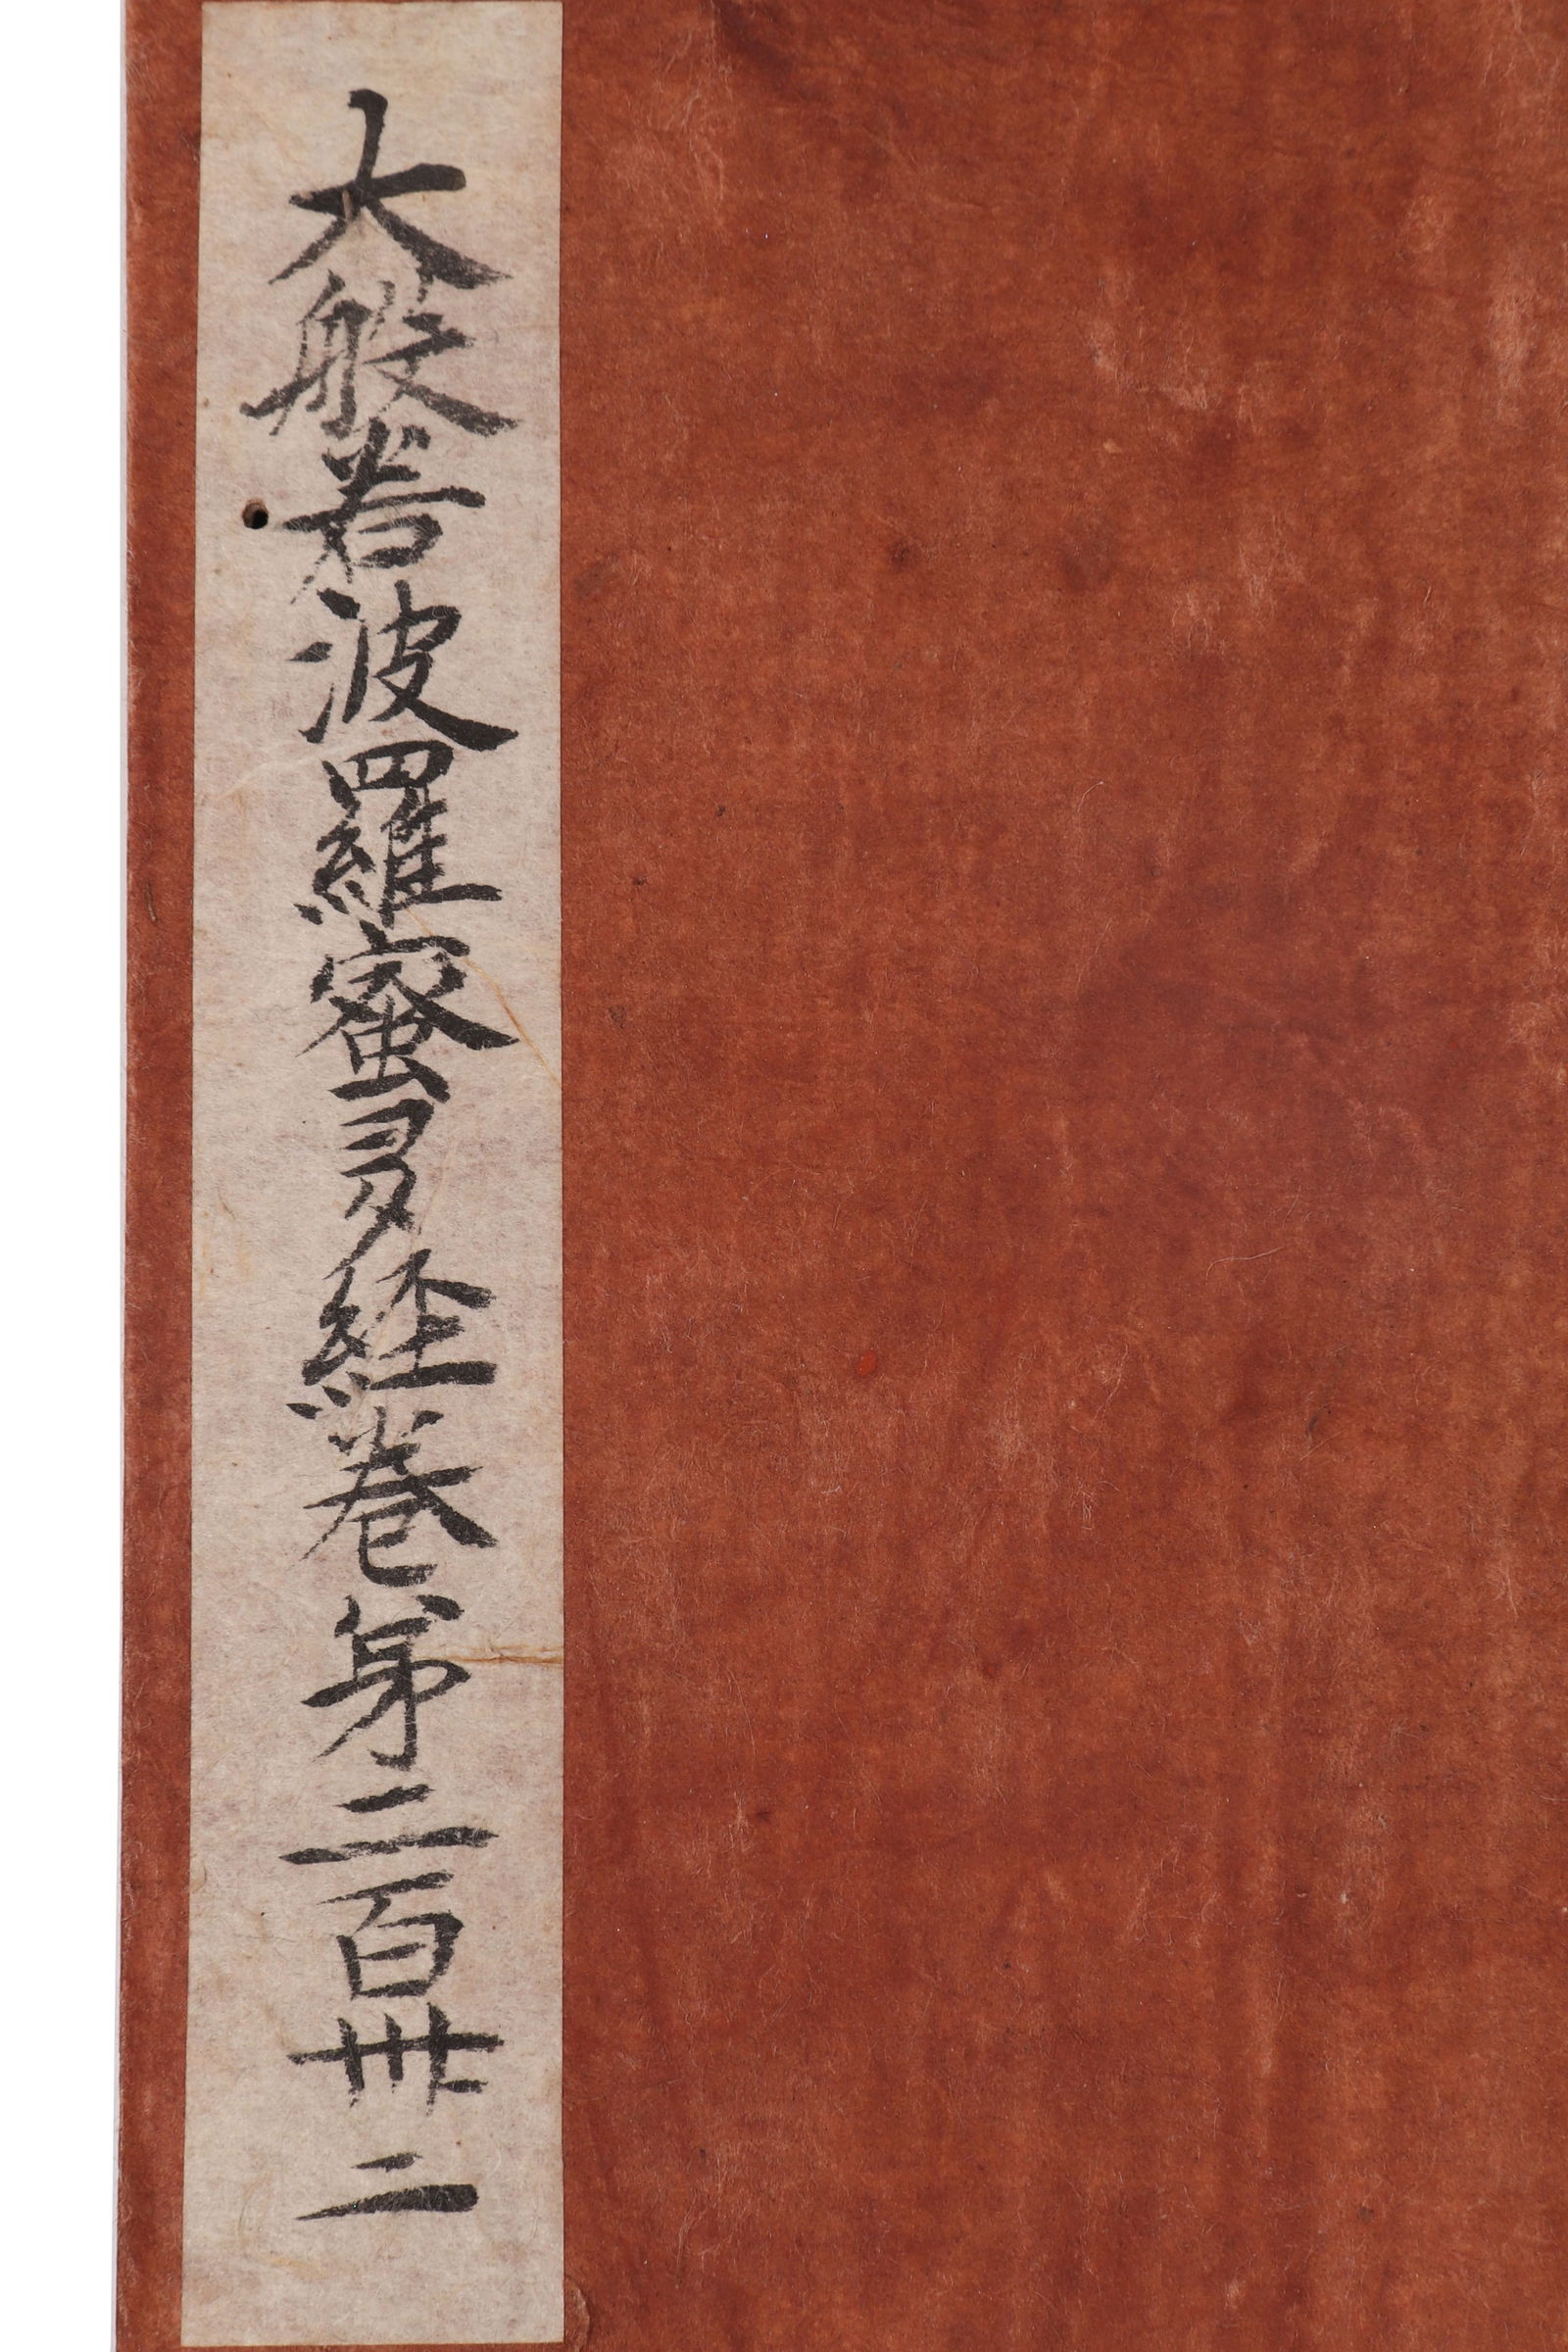 大般若波羅蜜多経巻第二百卌二